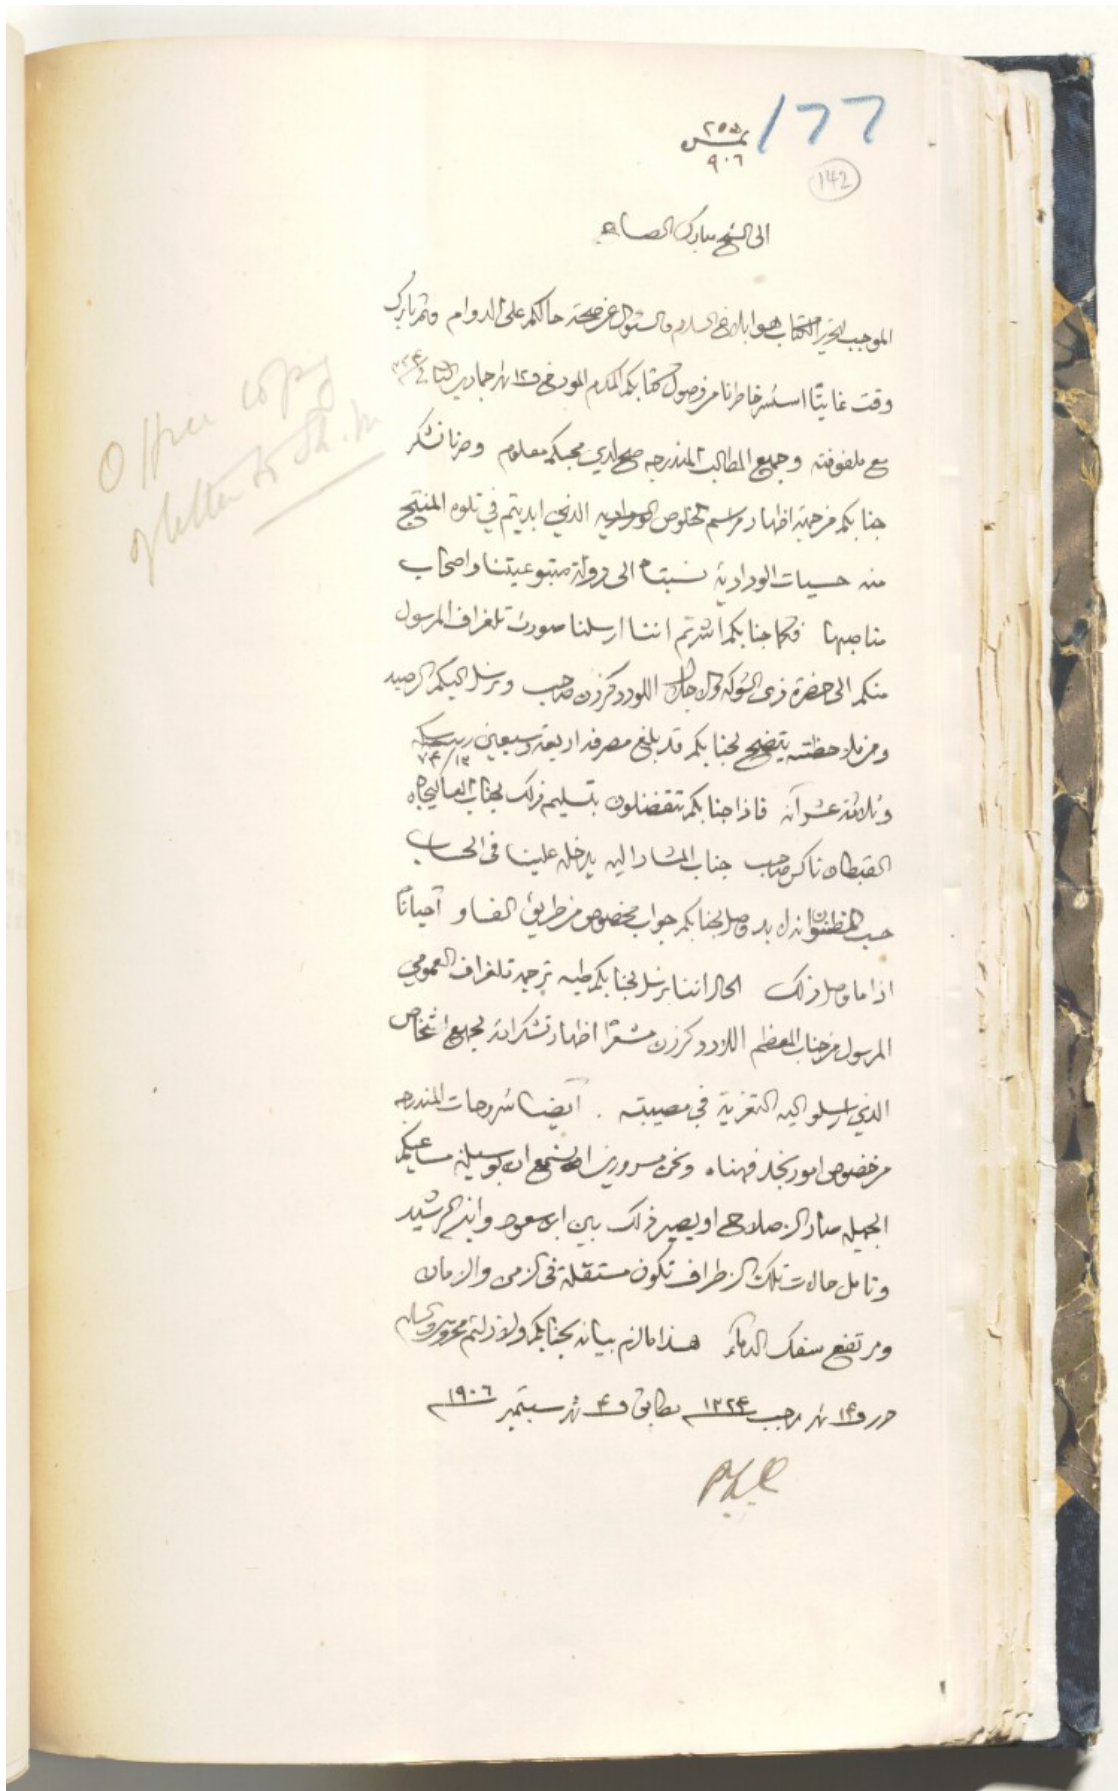 177
نمبر ٢٥٥
٩٠٦
142
الى الشيخ مبارك الصباح
الموجب لتحرير الكتاب هو ابلاغ السلام والسئوال عن صحة حالكم على الدوام وثم بابرك
وقت غايتًا استسر خاطرنا من وصول كتابكم المكرم المورخ في ١٢ شهر جمادي الثاني ٣٢٤
مع ملفوفته وجميع المطالب المندرجه صح لدي محبكم معلوم وصرنا نشكر
جنابكم من جهة اظهار مراسم الخلوص الوداديه الذي ابديتم في تلوه المنتج
منه حسيات الوداديه نسبتًا الى دولة متبوعيتنا واصحاب
مناصبها فكما جنابكم اشرتم اننا ارسلنا صورت تلغراف المرسول
منكم الى حضرة ذي الشوكه والاجلال اللورد كرزن صاحب ونرسل اليكم الرصيد
ومن ملاحظته يتضح لجنابكم قد بلغ مصرفه اربعة وسبعين ربيه
٧٤/١٣
وثلاثة عشر آنه فاذا جنابكم تتفضلون بتسليم ذلك لجناب العاليجاه
القبطان ناكس صاحب جناب المشار اليه يدخله علينا في الحساب
حسب المظنون انه لابد وصل لجنابكم جواب مخصوص من طريق الفاو احيانًا
اذا ما وصل ذلك الحال اننا نرسل لجنابكم طيه ترجمة تلغراف العمومي
المرسول من جناب المعظم اللارد كرزن مشعرًا اظهار تشكراته لجميع اشخاص
الذي راسلوا اليه التعزية في مصيبته . ايضًا شروحات المندرجه
من خصوص امور نجد فهمناه ونحن مسرورين ان نسمع ان بوسيلة مساعيكم
الجميله صار الاصلاح او يصير ذلك بين ابن سعود وابن الرشيد
ونامل حالات تلك الاطراف تكون مستقلة في الامن والامان
ومرتفع سفك الدماء هذا مالزم بيانه لجنابكم ولازلتم محروسين والسلام
حرر في ١٤ شهر رجب ١٣٢٤ مطابق في ٤ شهر سبتمبر ١٩٠٦
Office copy
of letter to Sh. M